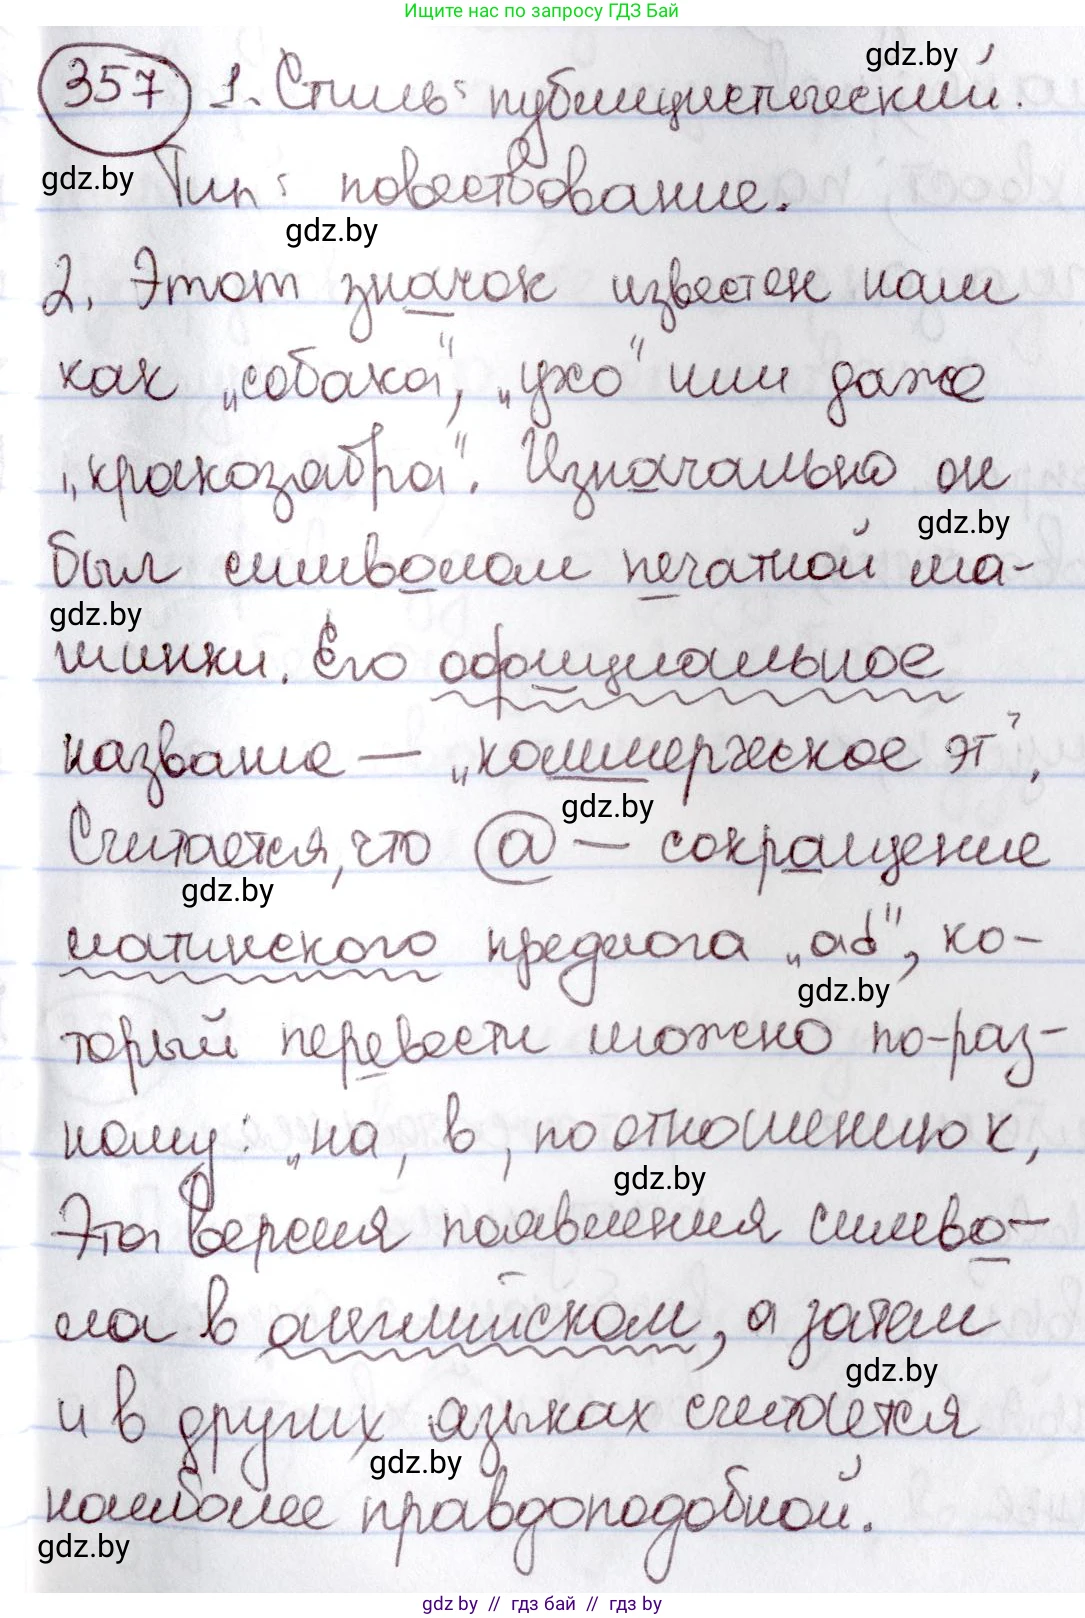 Ищите нас по запросу ГДЗ Бай
gdz.by
357 1. Стиль: публицистический.
gdz.by
Тип: повествование.
gdz.by
2. Этот значок известен нам
как „собака", „ухо" или даже
„кракозабра". Изначально он
gdz.by
был символом печатной ма-
gdz.by
шинки. Его официальное
название — „коммерческое эт".
gdz.by
Считается, что @ — сокращение
gdz.by
латинского предлога „ad", ко-
gdz.by
торый перевести можно по-раз-
ному: „на, в, по отношению к,
gdz.by
Эта версия появления симво-
ла в английском, а затем
gdz.by
и в других языках считается
gdz.by
наиболее правдоподобной.
gdz.by
gdz.by // гдз бай // гдз by